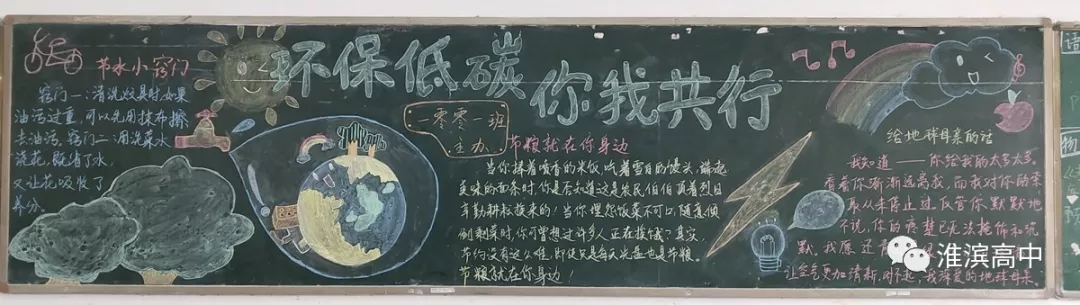 环保低碳
你我共行
节水小窍门
窍门一:清洗炊具时,如果
油污过重,可以先用抹布擦
去油污。窍门二:用洗菜水
浇花,既省了水,
又让花吸收了
养分。
一零零一班
主办
节粮就在你身边
当你捧着喷香的米饭,吃着雪白的馒头,
美味的面条时,你是否知道这是农民伯伯顶着烈日
辛勤耕耘换来的!当你埋怨饭菜不可口,随意倾
倒剩菜时,你可曾想过许多人正在挨饿?其实,
节约没有这么难,即使只是每天光盘也是节粮。
节粮就在你身边!
给地球母亲的话
我知道——你给我的太多太多。
看着你渐渐远离我,而我对你的索
取从未停止过,尽管你默默地
不说,你的疼楚已无法掩饰和沉
默。我愿还
让空气更加清新,对不起,我深爱的地球母亲。
淮滨高中